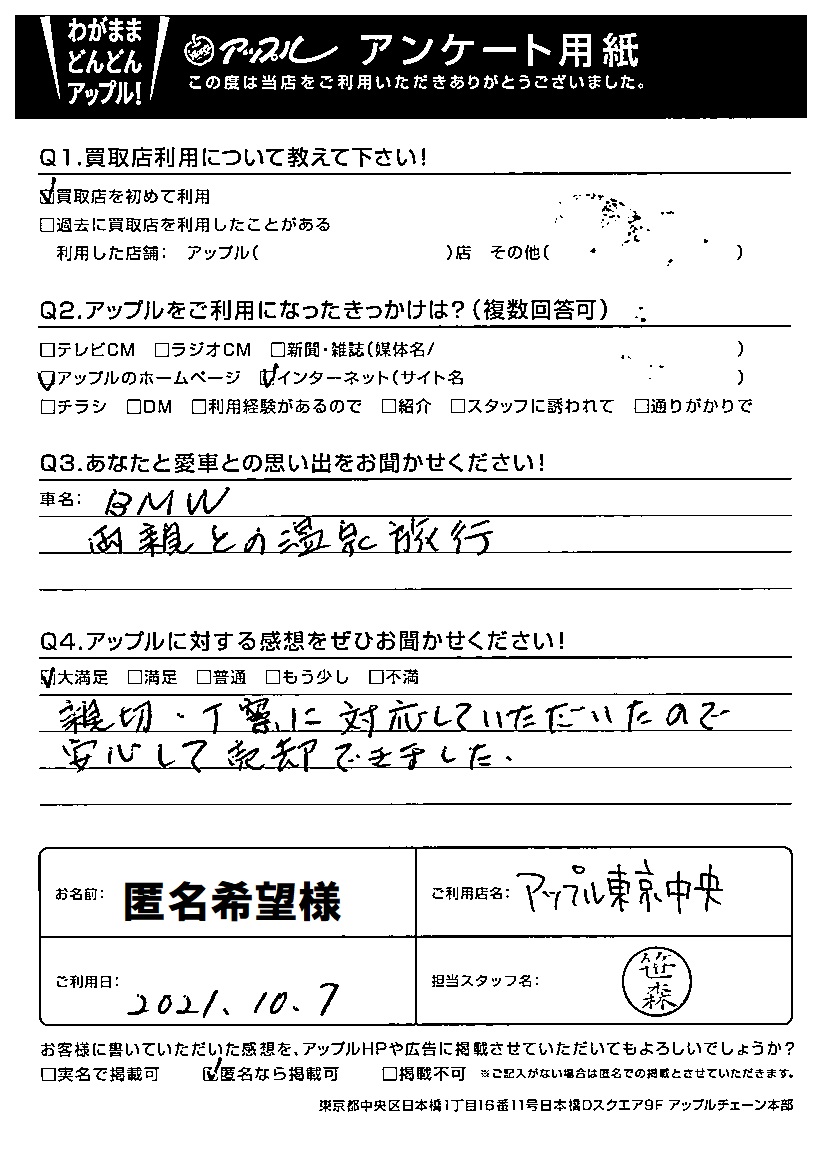 わがまま
どんどん
アップル!
アップル アンケート用紙
この度は当店をご利用いただきありがとうございました。
Q1.買取店利用について教えて下さい!
☑買取店を初めて利用
□過去に買取店を利用したことがある
利用した店舗: アップル( )店 その他( )
Q2.アップルをご利用になったきっかけは?(複数回答可)
□テレビCM □ラジオCM □新聞・雑誌(媒体名/ )
☑アップルのホームページ ☑インターネット(サイト名 )
□チラシ □DM □利用経験があるので □紹介 □スタッフに誘われて □通りがかりで
Q3.あなたと愛車との思い出をお聞かせください!
車名: BMW
両親との温泉旅行
Q4.アップルに対する感想をぜひお聞かせください!
☑大満足 □満足 □普通 □もう少し □不満
親切・丁寧に対応していただいたので
安心して売却できました.
お名前: 匿名希望様
ご利用店名: アップル東京中央
ご利用日: 2021.10.7
担当スタッフ名: 笹森
お客様に書いていただいた感想を、アップルHPや広告に掲載させていただいてもよろしいでしょうか?
□実名で掲載可 ☑匿名なら掲載可 □掲載不可 ※ご記入がない場合は匿名での掲載とさせていただきます。
東京都中央区日本橋1丁目16番11号日本橋Dスクエア9F アップルチェーン本部